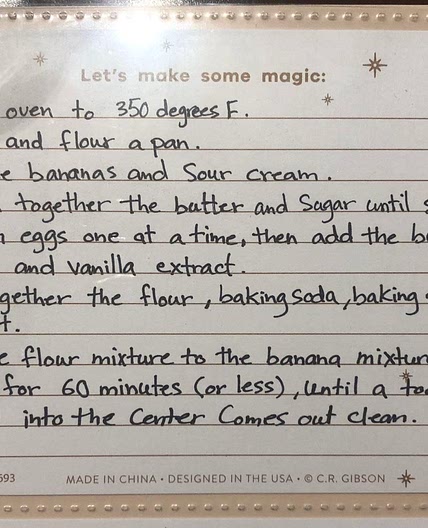 Let's make some magic:
oven to 350 degrees F.
and flour a pan.
bananas and Sour cream.
together the butter and Sugar until
eggs one at a time, then add the
and vanilla extract.
the flour, baking soda, baking
flour mixture to the banana
for 60 minutes (or less), until a
into the Center Comes out clean.
MADE IN CHINA • DESIGNED IN THE USA • © C.R. GIBSON